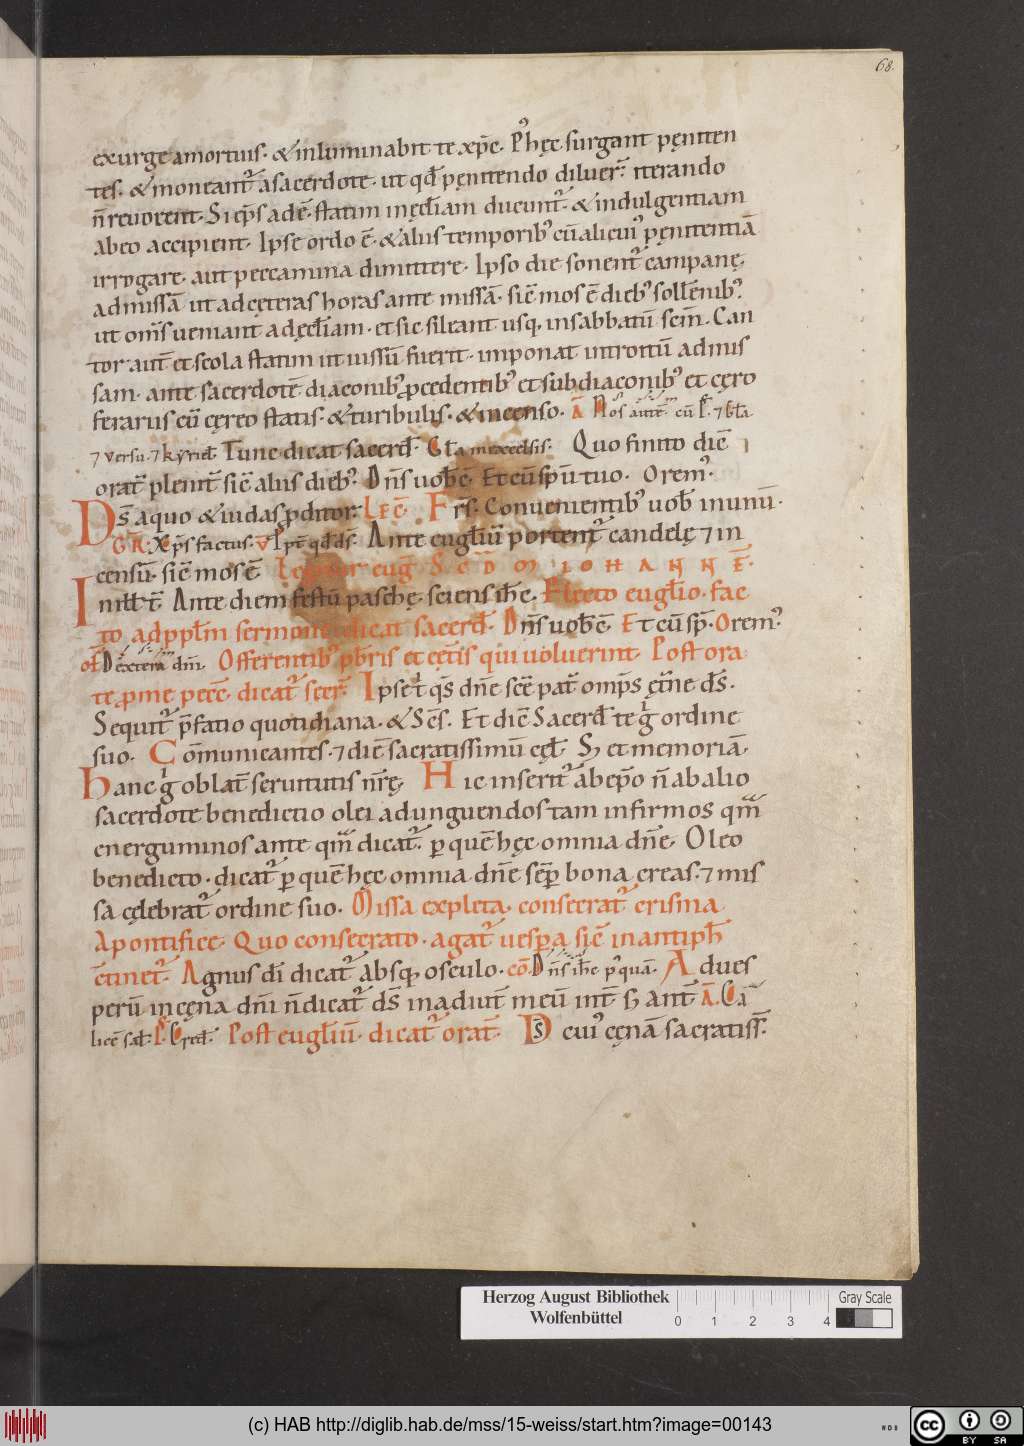 68.
exurge amortuis. & inluminabit te xp̄e. P᷒ hęc surgant pęniten
tes. & moneant᷒ asacerdote. ut qd̄ pęnitendo diluer̄. iterando
n̄ reuocent. Si ep̄s adē. statim inęcl̄iam ducunt᷒. & indulgentiam
abeo accipient. Ipse ordo ē. & aliis temporib᷒ cū alicui᷒ pęnitentiā
irrogare. aut peccamina dimittere. Ipso die sonent᷒ campanę.
admissā ut adcęteras horas ante missā. sic̄ mos ē dieb᷒ soll̄enib᷒.
ut om̄s ueniant adęcl̄iam. et sic sileant usq, insabbatū sc̄m. Can
tor aut̄ et scola statim ut iussū fuerit. imponat introitū admis
sam. ante sacerdotē diaconib᷒ p̄cedentib᷒ et subdiaconib᷒ et cęro
ferarus cū cęreo statis. & turibulis. & incenso. ā Nos autem̄ cū P̄. ⁊ Gl̄a.
⁊ versu. ⁊ kyriel̄. Tunc dicat sacerd̄. Gl̄a inexcelsis. Quo finito dic̄
orat̄ plenit̄ sic̄ aliis dieb᷒. Dn̄s uob̄c̄. Et cū sp̄ū tuo. Orem᷒.
Ds̄ aquo & iudas p̄ditor. Lec̄. Fr̄s. Conuenientib᷒ uob̄ inunū.
GR̄. Xp̄s factus. v̄ Ppt̄ qd̄ ds̄. Ante eugl̄iū portent᷒ candelę ⁊ in
censū. sic̄ mos ē. Legitur eug̅ Sc̄dm̄ iohannē.
In ill̄ t̄. Ante diem festū paschę. sciens ih̄c. Electo eugl̄io. fac
to adppl̄m sermone dicat sacerd̄. Dn̄s uob̄c̄. Et cū sp̄. Orem᷒.
of̄ Dextera dn̄i. Offerentib᷒ pb̄ris et cęt̄is qui uoluerint. Post ora
te p̄ me pecc̄. dicat᷒ secr̄. Ipse t̄ qs̄ dn̄e sc̄e pat̄ omp̄s ęt̄ne ds̄.
Sequit᷒ p̄fatio quotidiana. & Sc̄s. Et dic̄ Sacerd̄ te g̊ ordine
suo. Cōmunicantes. ⁊ diē sacratissimū cęl̄. S; et memoriā.
Hanc g̊ oblat̄ seruitutis nr̄ę. Hic inserit᷒ abep̄o n̄ abalio
sacerdote benedictio olei adunguendos tam infirmos qm̄
energuminos ante qm̄ dicat᷒. p̱ quē hęc omnia dn̄e. Oleo
benedicto. dicat᷒ p̱ quē hęc omnia dn̄e sēp̱ bona creas. ⁊ mis
sa cęlebrat᷒ ordine suo. Missa expleta. consecrat᷒ crisma
Apontifice. Quo consecrato. agat᷒ uesp̱a sic̄ inantiph̄
c̄tinet᷒. Agnus dī dicat᷒ absq, osculo. cō. Dn̄s ih̄c p᷒quā. Adues
perū incęna dn̄i n̄ dicat᷒ ds̄ inadiut̄ meū int̄. S; ant̄ ā. Ca
licē sal̄. P̄. Cred̄. Post eugl̄iū. dicat᷒ orat̄. Ds̄ cui᷒ cęnā sacratiss̄.
Herzog August Bibliothek
Wolfenbüttel
0 1 2 3 4
Gray Scale
(c) HAB http://diglib.hab.de/mss/15-weiss/start.htm?image=00143
cc BY SA